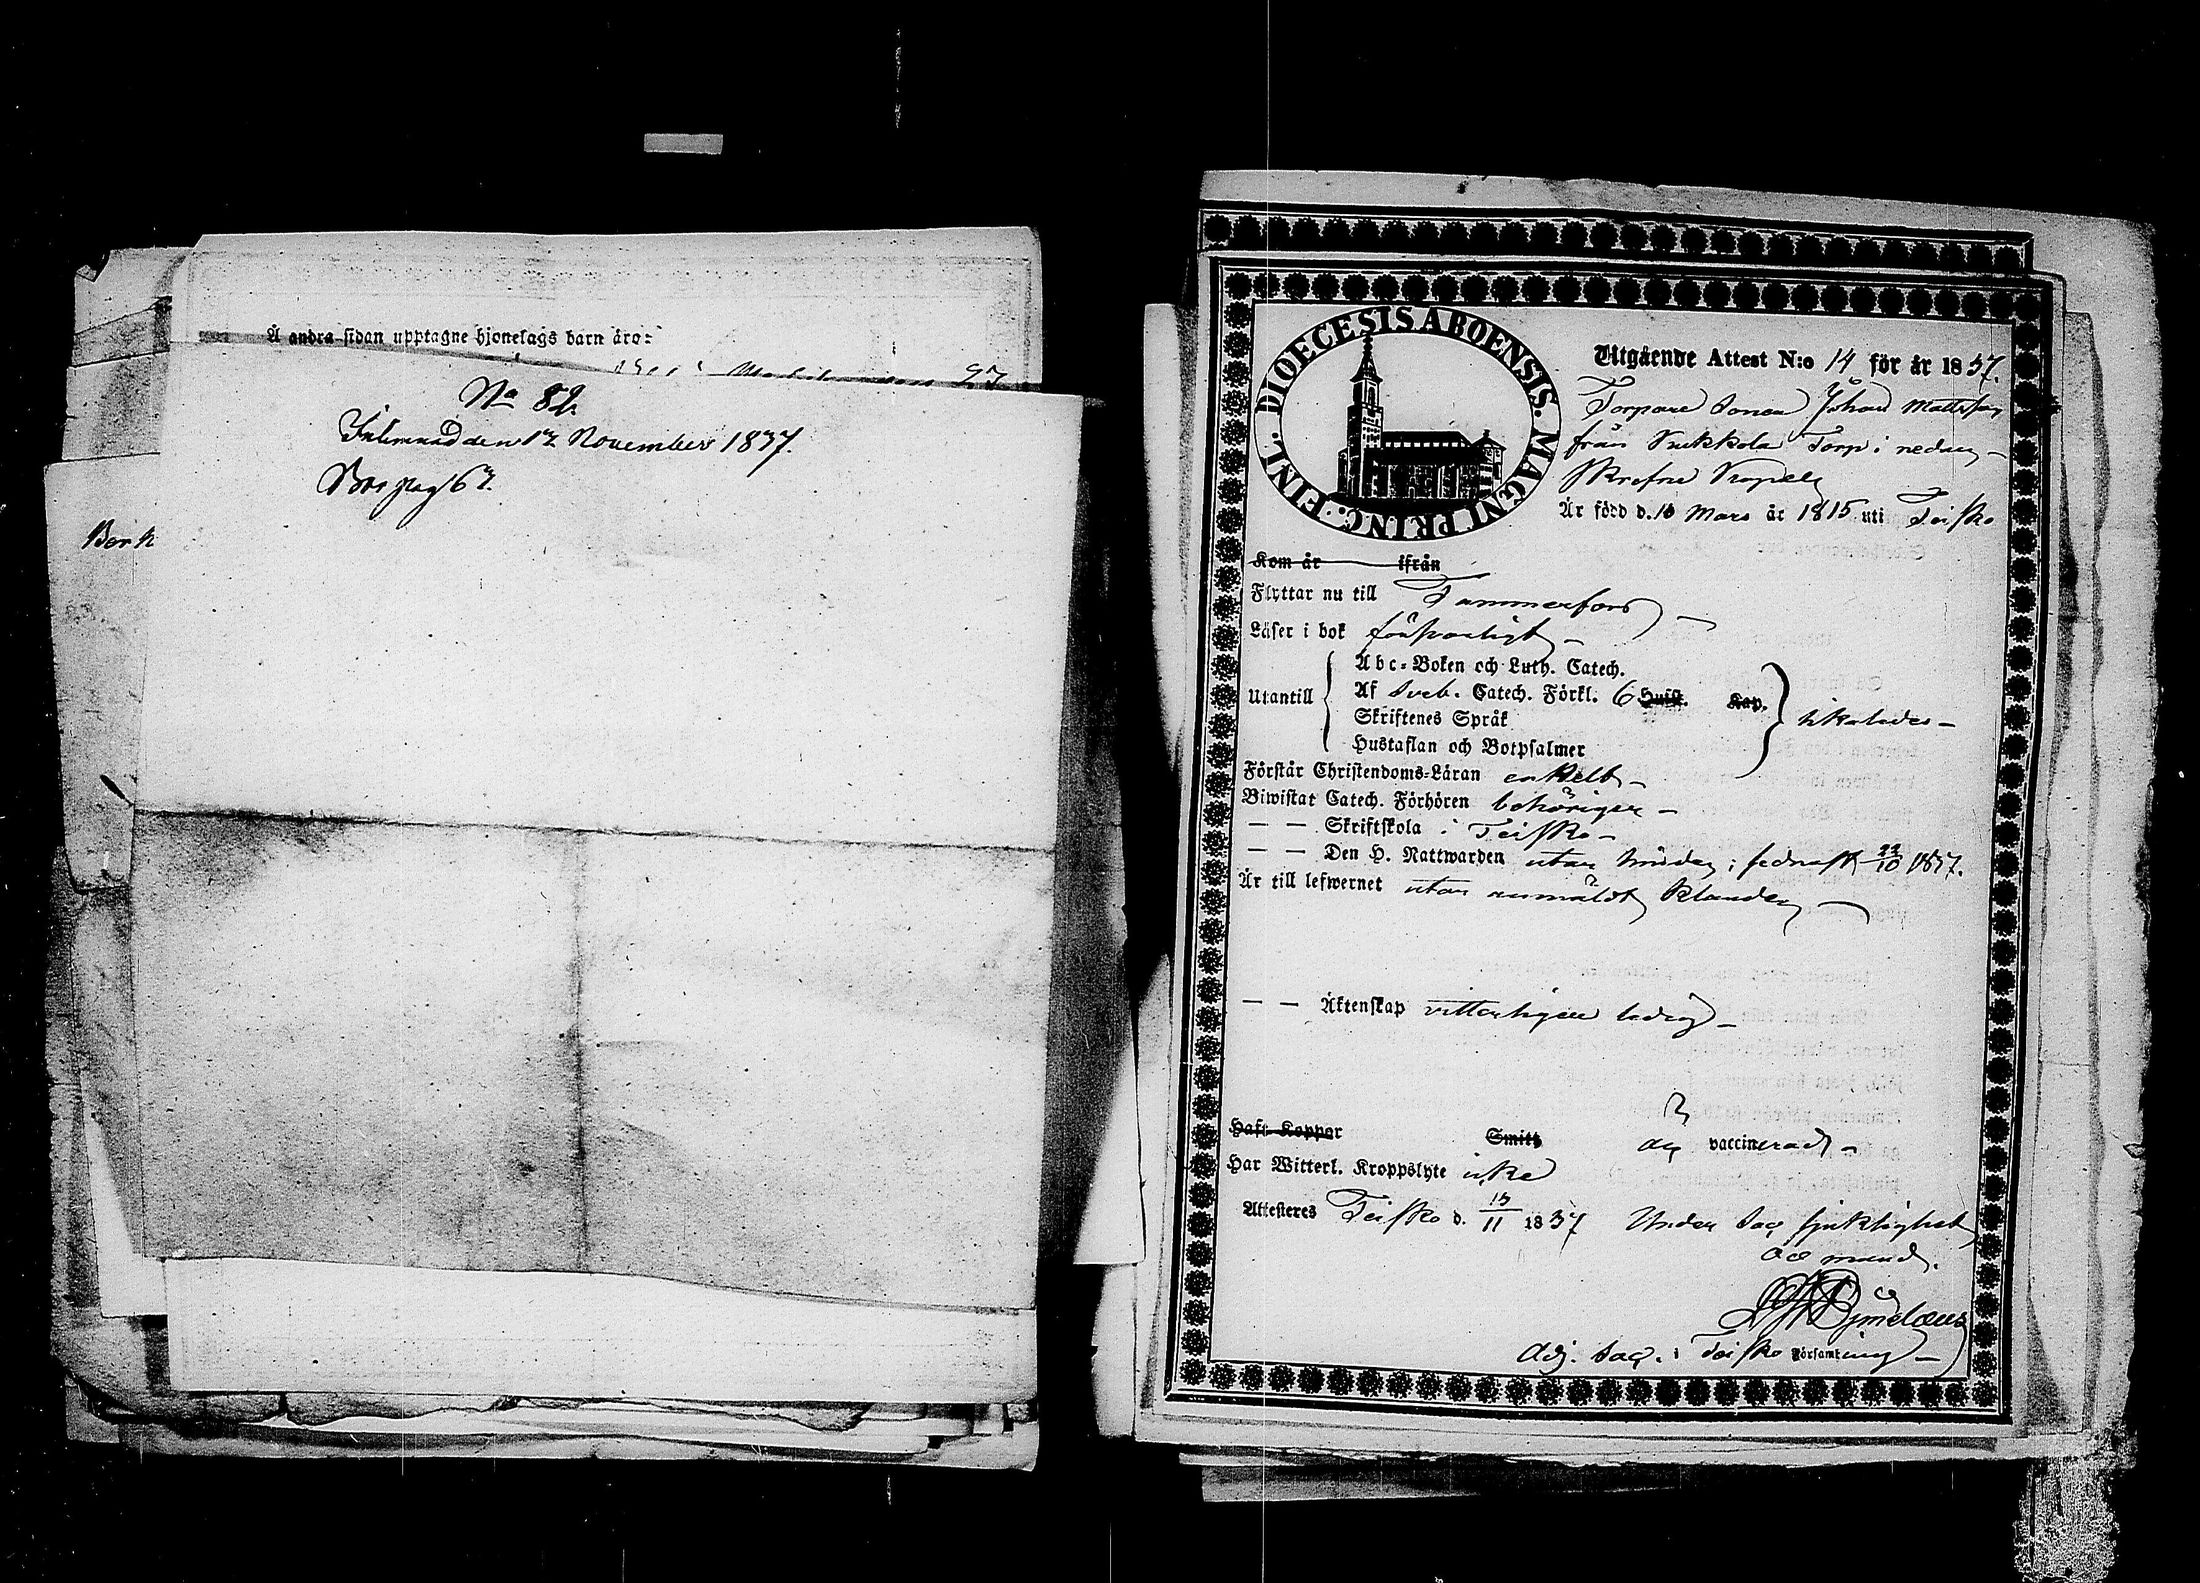 Å andra sidan upptagne hjonelags barn äro:
No 82.
Inlemnad den 17 November 1837.
Bor pag 67.
Bork
DIOECESIS ABOENSIS. MAGNI PRINC. FINL.
Utgående Attest N:o 14 för år 1837.
Torpare Sonen Johan Mattsson
från Torp i nedan
skrefne Kapell
Är född d. 10 Mars år 1815 uti Teisko
Kom år ifrån
Flyttar nu till Tammerfors
Läser i bok försvarligt
Utantill
Abc-Boken och Luth. Catech.
Af Sveb. Catech. Förkl. 6 Hufst. Kap.
Skriftenes Språk
Hustaflan och Botpsalmer
likaledes
Förstår Christendoms-Läran enkelt
Biwistat Catech. Förhören behörigen
— — Skriftskola i Teisko
— — Den H. Nattwarden utan hinder, sednast 22/10 1837.
Är till lefwernet utan anmäldt klander
— — Äktenskap vitterligen ledig
Haft Koppor Smitt är vaccinerad
Har Witterl. Kroppslyte icke
Attesteres Teisko d. 13/11 1837 Under Sac. sjuklighet
Adj. Sac. i Teisko Församling